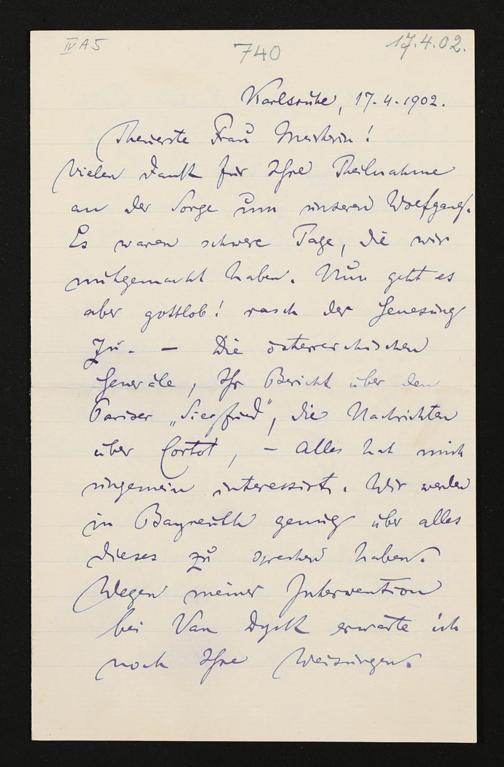 IV A 5
740
17.4.02.
Karlsruhe, 17.4.1902.
Theuerste Frau Meisterin!
Vielen Dank für Ihre Theilnahme
an der Sorge um unseren Wolfgang.
Es waren schwere Tage, die wir
mitgemacht haben. Nun geht es
aber gottlob! rasch der Genesung
zu. — Die österreichischen
Generäle, Ihr Bericht über den
Pariser „Siegfried", die Nachrichten
über Cortot, — alles hat mich
ungemein interessirt. Wir werden
in Bayreuth genug über alles
dieses zu sprechen haben.
Wegen meiner Intervention
bei Van Dyck erwarte ich
noch Ihre Weisungen.